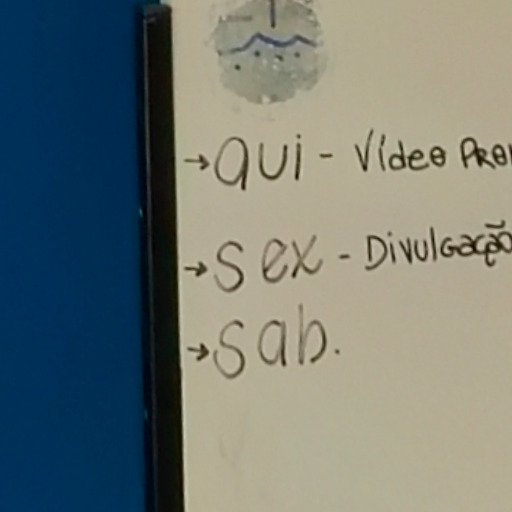 → qui - Vídeo
→ sex - Divulgação
→ sab.